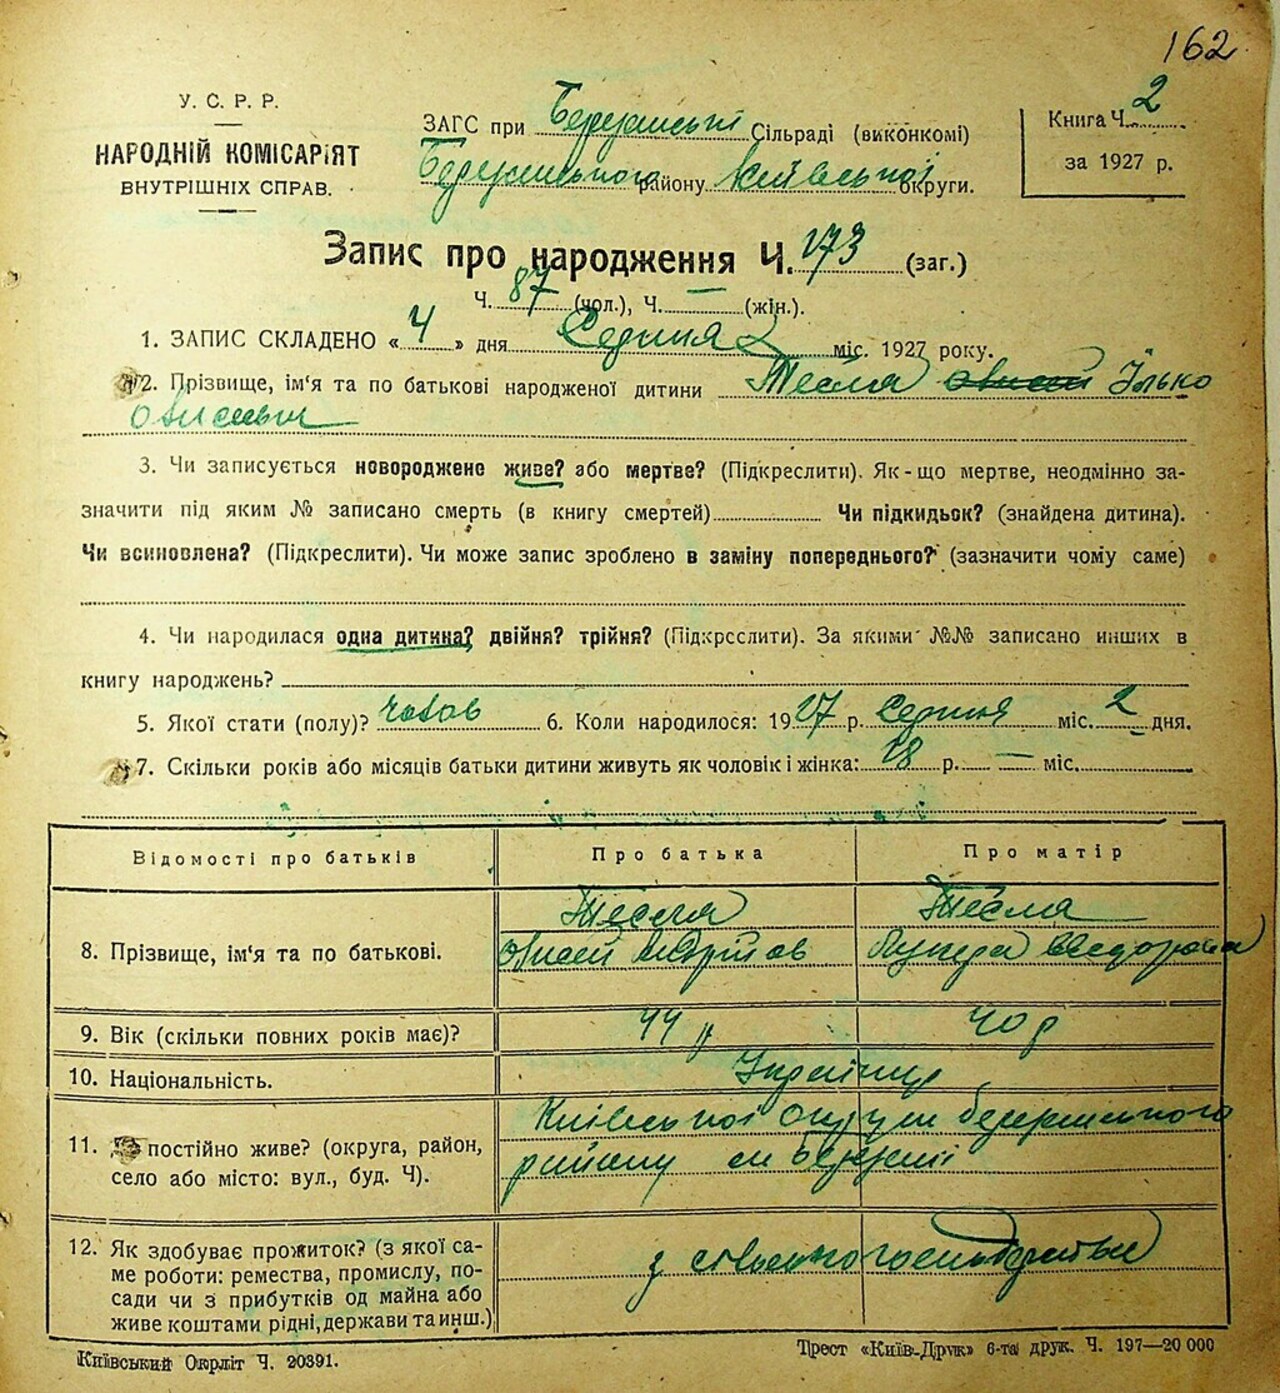 162
У. С. Р. Р.
НАРОДНІЙ КОМІСАРІЯТ
ВНУТРІШНІХ СПРАВ.
ЗАГС при Березанські Сільраді (виконкомі)
Березанського району Київської округи.
Книга Ч. 2
за 1927 р.
Запис про народження Ч. 173 (заг.)
Ч. 87 (чол.), Ч. — (жін.).
1. ЗАПИС СКЛАДЕНО «4» дня Серпня міс. 1927 року.
2. Прізвище, ім'я та по батькові народженої дитини Тесля Овсій Ілько
Овисеьи
3. Чи записується новороджене живе? або мертве? (Підкреслити). Як-що мертве, неодмінно за-
значити під яким № записано смерть (в книгу смертей) Чи підкидьок? (знайдена дитина).
Чи всиновлена? (Підкреслити). Чи може запис зроблено в заміну попереднього? (зазначити чому саме)
4. Чи народилася одна дитина? двійня? трійня? (Підкреслити). За якими №№ записано инших в
книгу народжень?
5. Якої стати (полу)? чолов 6. Коли народилося: 1927 р. Серпня міс. 2 дня.
7. Скільки років або місяців батьки дитини живуть як чоловік і жінка: 18 р. — міс.
Відомості про батьків
Про батька
Про матір
8. Прізвище, ім'я та по батькові.
Тесля
Овсій Андріїов
Тесля
Лукера
9. Вік (скільки повних років має)?
44 р
40 р
10. Національність.
Українці
11. постійно живе? (округа, район,
село або місто: вул., буд. Ч).
Київської округи березанського
району м березані
12. Як здобуває прожиток? (з якої са-
ме роботи: ремества, промислу, по-
сади чи з прибутків од майна або
живе коштами рідні, держави та инш.)
з сільського господарства
Київський Окрліт Ч. 20391.
Трест «Київ-Друк» 6-та друк. Ч. 197—20 000